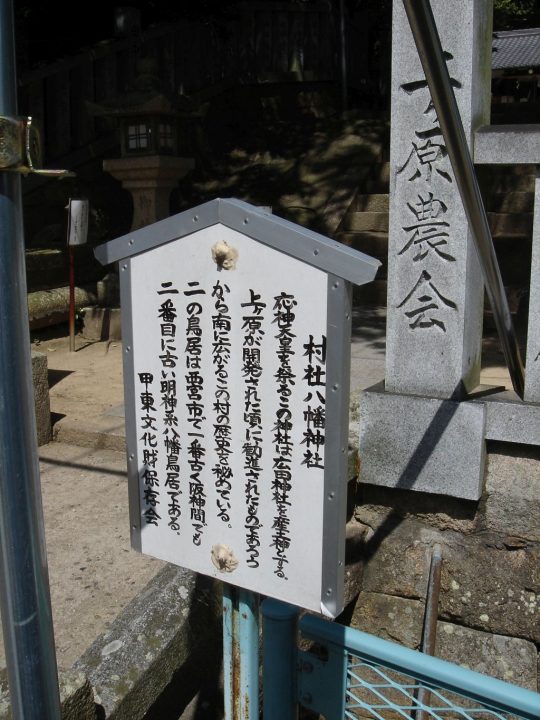 村社八幡神社
応神天皇を祭るこの神社は広田神社を産土神とする。
上ヶ原が開発された頃に勧進されたものであろう
から南に広がるこの村の歴史を秘めている。
二の鳥居は西宮市で一番古く阪神間でも
二番目に古い明神系八幡鳥居である。
甲東文化財保存会
ヶ原農会